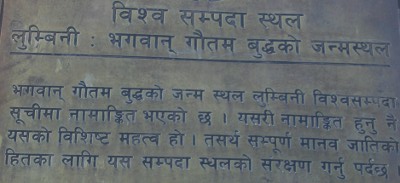 विश्व सम्पदा स्थल
लुम्बिनी : भगवान् गौतम बुद्धको जन्मस्थल
भगवान् गौतम बुद्धको जन्म स्थल लुम्बिनी विश्वसम्पदा
सूचीमा नामाङ्कित भएको छ । यसरी नामाङ्कित हुनु नै
यसको विशिष्ट महत्व हो । तसर्थ सम्पूर्ण मानव जातिको
हितका लागि यस सम्पदा स्थलको संरक्षण गर्नु पर्दछ